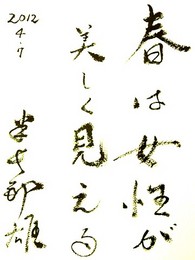 春は女性が
美しく見える
2012
4.7
郎雄